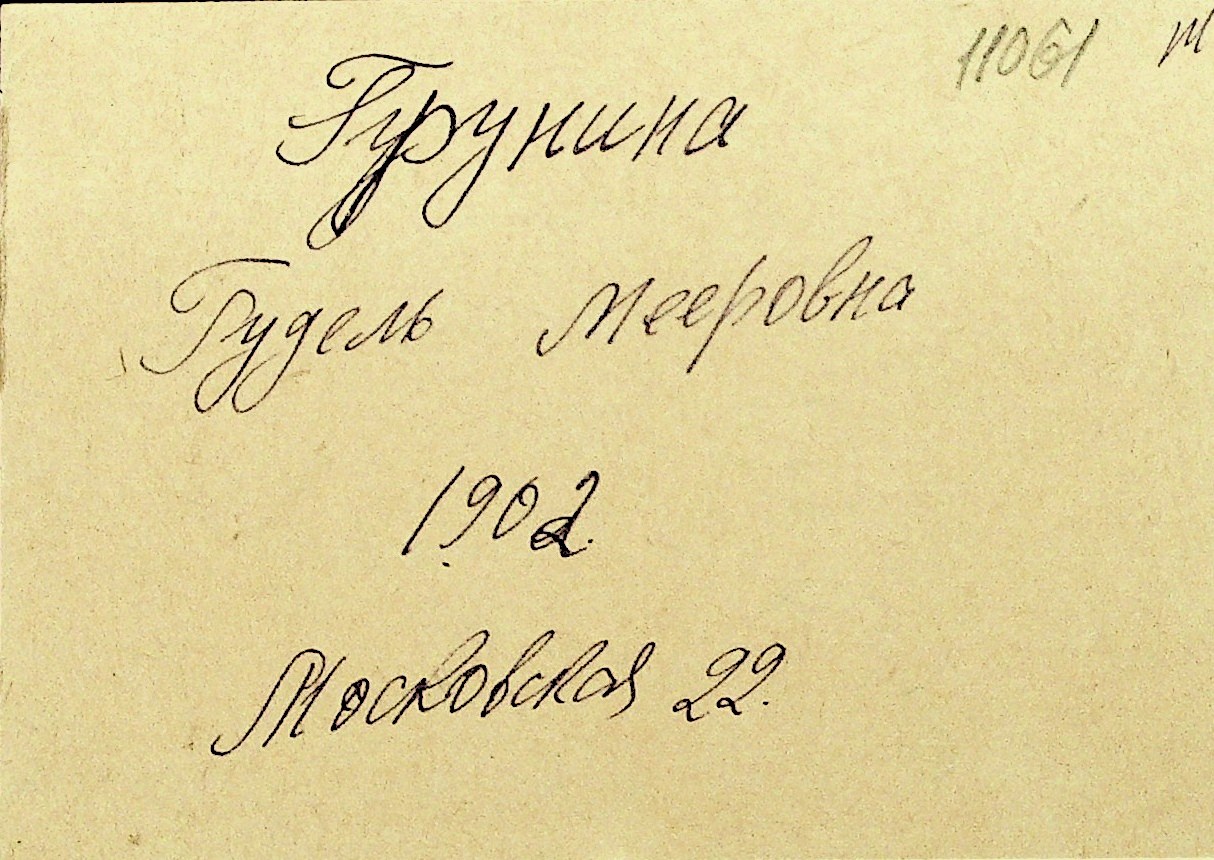 11061
Грунина
Гудель Мееровна
1902.
Московская 22.